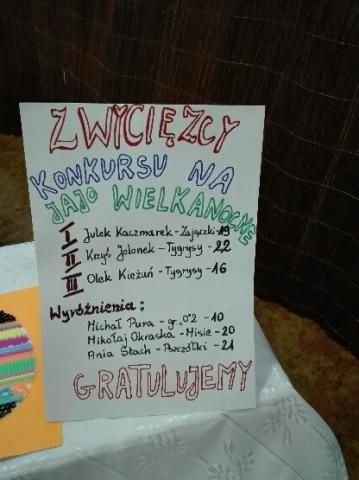 ZWYCIĘZCY
KONKURSU NA
JAJO WIELKANOCNE
I Julek Kaczmarek - Zajączki - 19
II Krzyś Jelonek - Tygrysy - 22
III Olek Kieżuń - Tygrysy - 16
Wyróżnienia :
Michał Pura - gr. "0"2 - 10
Mikołaj Okraska - Misie - 20
Ania Stach - Pszczółki - 21
GRATULUJEMY